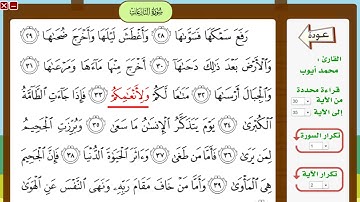 سورة النازعات
رَفَعَ سَمْكَهَا فَسَوَّىٰهَا ٢٨ وَأَغْطَشَ لَيْلَهَا وَأَخْرَجَ ضُحَىٰهَا ٢٩
وَٱلْأَرْضَ بَعْدَ ذَٰلِكَ دَحَىٰهَآ ٣٠ أَخْرَجَ مِنْهَا مَآءَهَا وَمَرْعَىٰهَا ٣١
وَٱلْجِبَالَ أَرْسَىٰهَا ٣٢ مَتَٰعًا لَّكُمْ وَلِأَنْعَٰمِكُمْ ٣٣ فَإِذَا جَآءَتِ ٱلطَّآمَّةُ
ٱلْكُبْرَىٰ ٣٤ يَوْمَ يَتَذَكَّرُ ٱلْإِنسَٰنُ مَا سَعَىٰ ٣٥ وَبُرِّزَتِ ٱلْجَحِيمُ
لِمَن يَرَىٰ ٣٦ فَأَمَّا مَن طَغَىٰ ٣٧ وَءَاثَرَ ٱلْحَيَوٰةَ ٱلدُّنْيَا ٣٨ فَإِنَّ ٱلْجَحِيمَ
هِىَ ٱلْمَأْوَىٰ ٣٩ وَأَمَّا مَنْ خَافَ مَقَامَ رَبِّهِۦ وَنَهَى ٱلنَّفْسَ عَنِ ٱلْهَوَىٰ
عودة
القارئ :
محمد أيوب
قراءة محددة
من الآية 30
إلى الآية 35
تكرار السورة
1
تكرار الآية
2